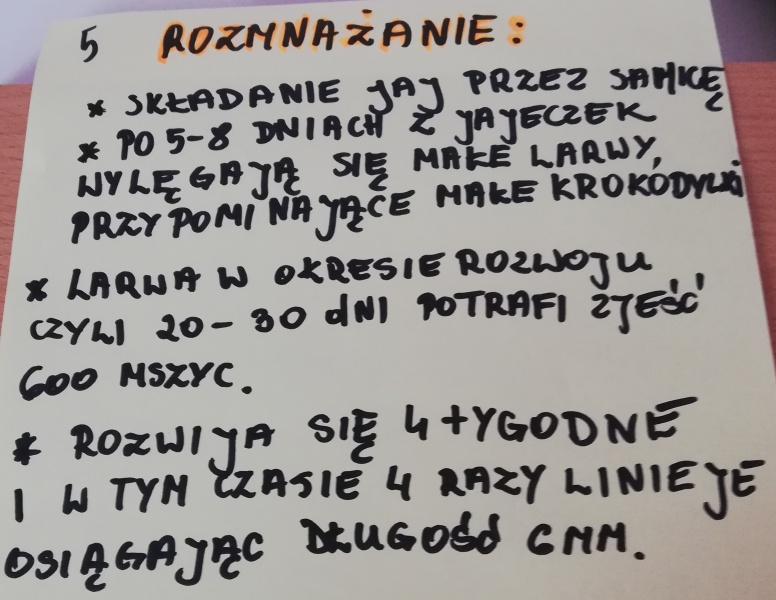 5 ROZMNAŻANIE:
* SKŁADANIE JAJ PRZEZ SAMICĘ
* PO 5-8 DNIACH Z JAJECZEK
WYLĘGAJĄ SIĘ MAŁE LARWY,
PRZYPOMINAJĄCE MAŁE KROKODYLKI
* LARWA W OKRESIE ROZWOJU
CZYLI 20-30 dNI POTRAFI ZJEŚĆ
600 MSZYC.
* ROZWIJA SIĘ 4 TYGODNE
I W TYM CZASIE 4 RAZY LINIEJE
OSIĄGAJĄC DŁUGOŚĆ 6MM.